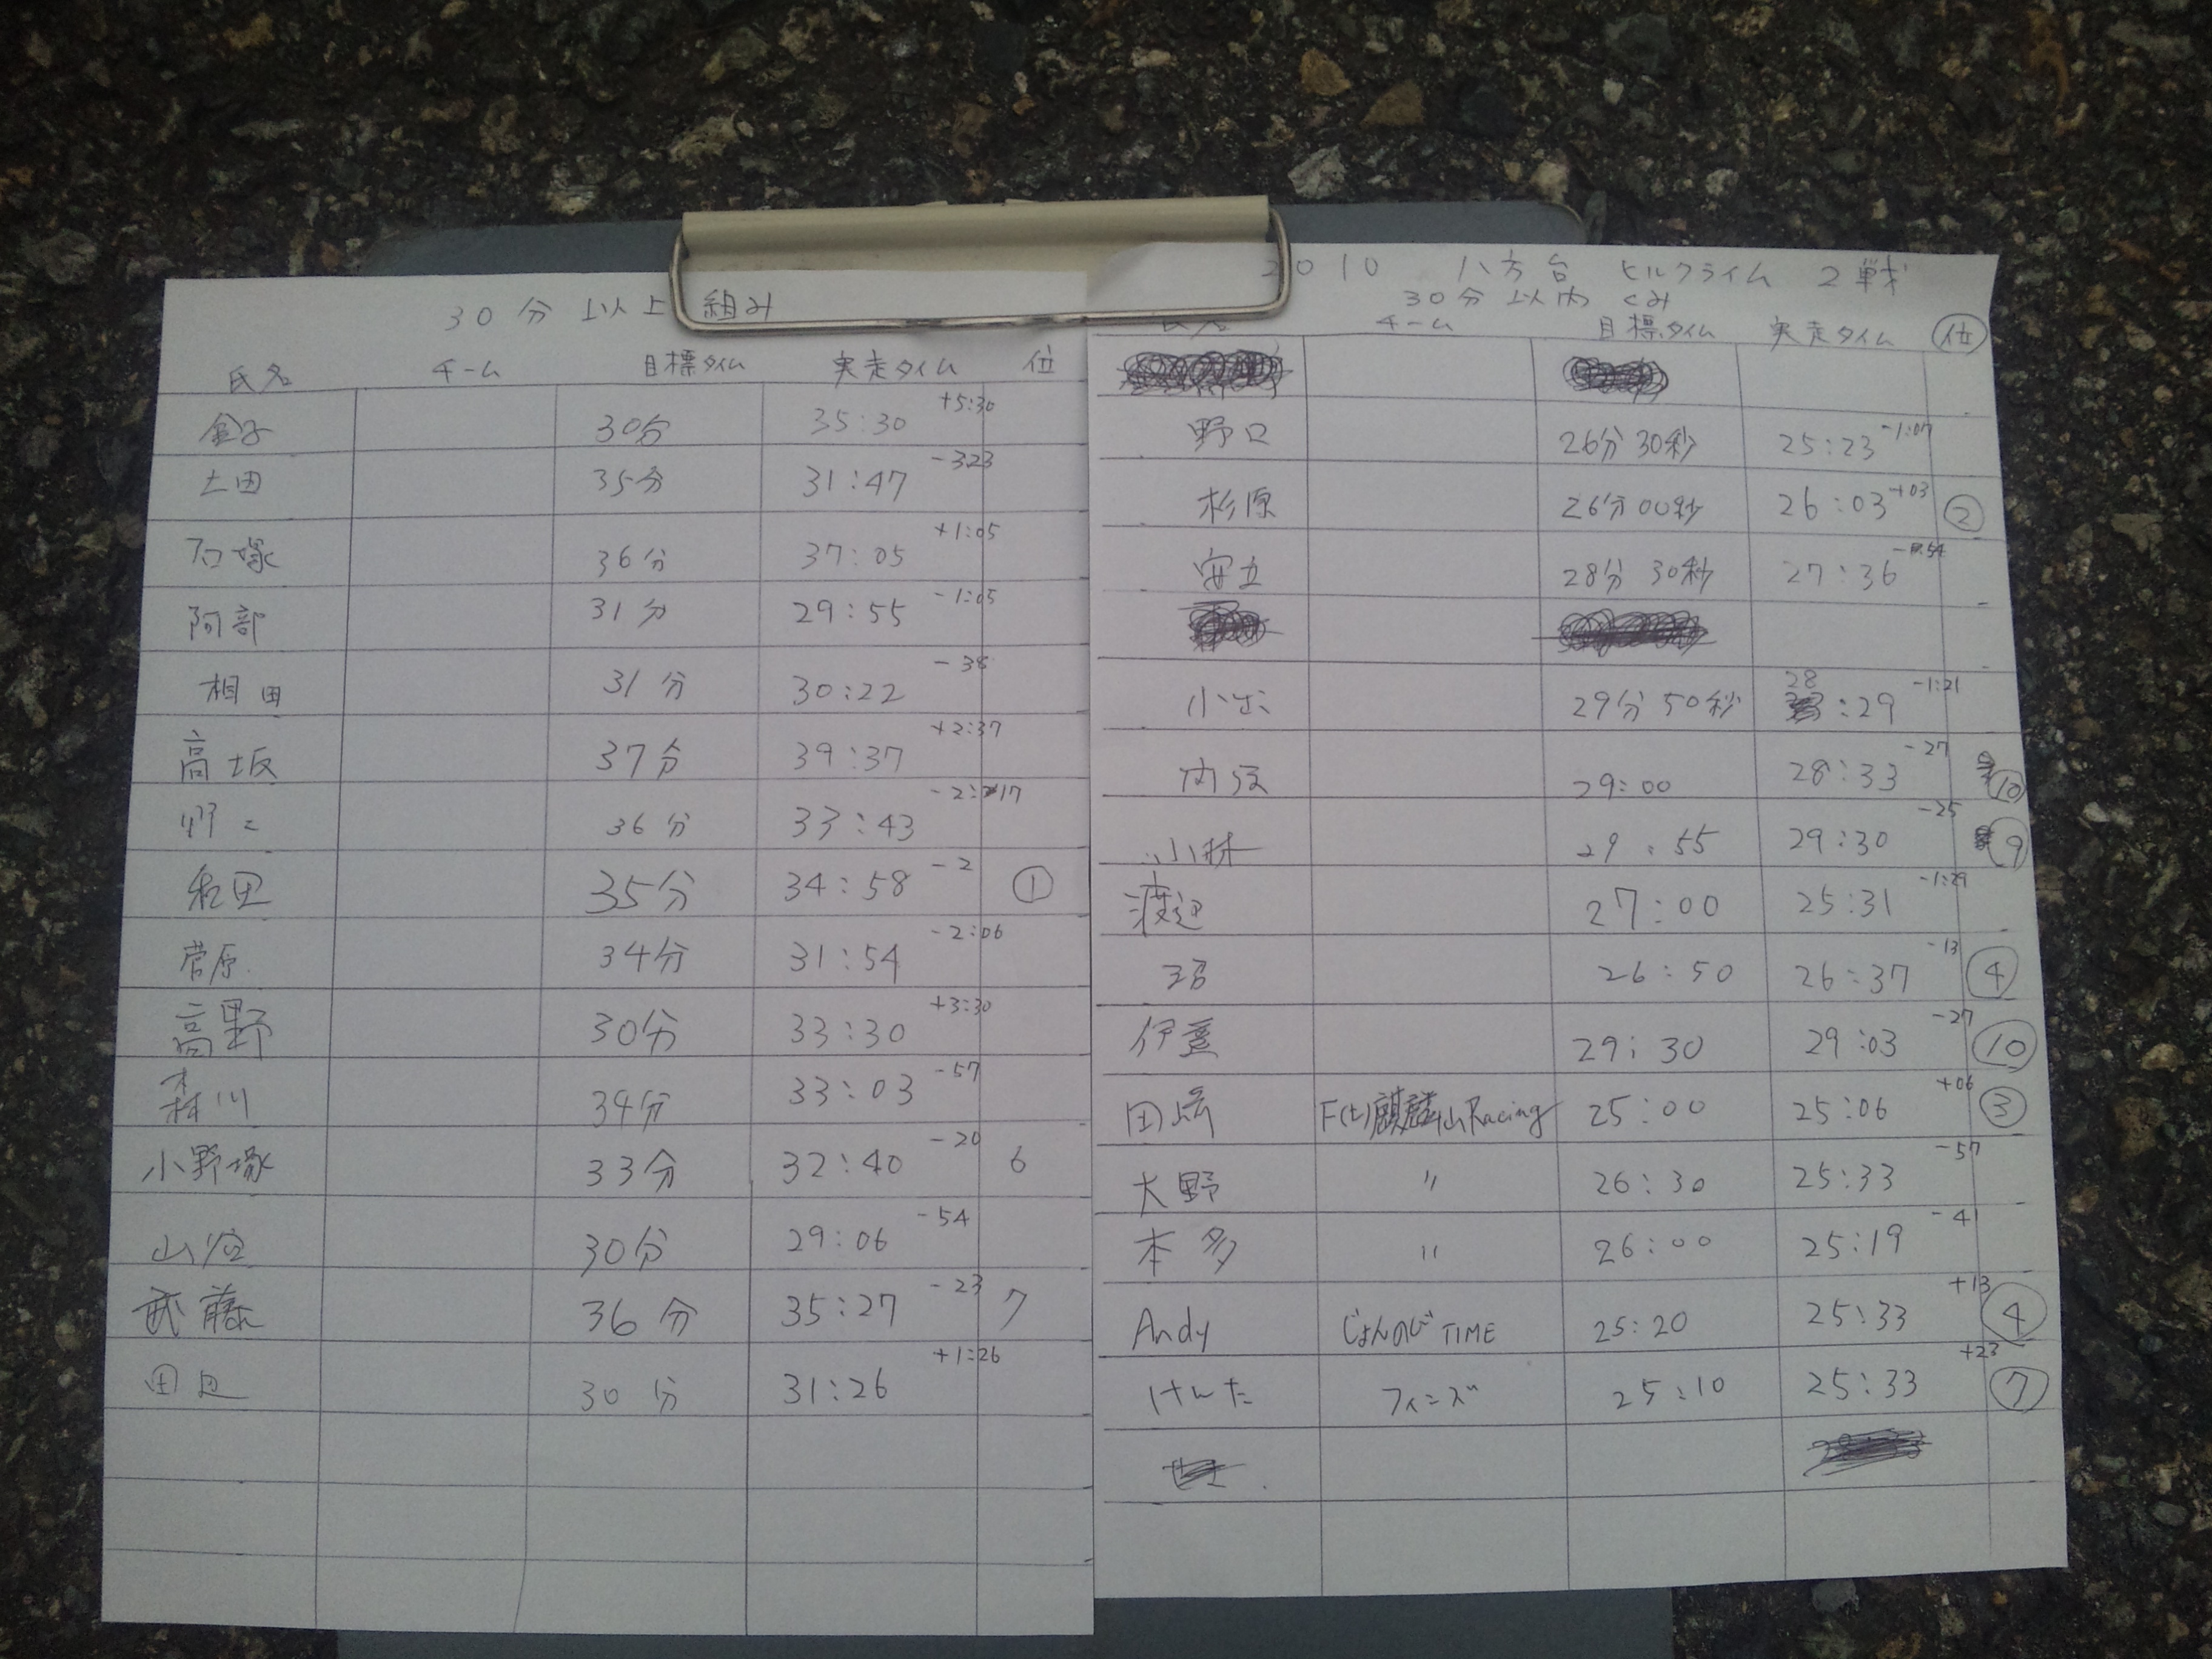 30分以上組み
氏名 チーム 目標タイム 実走タイム 位
金子 30分 35:30 +5:30
土田 35分 31:47 -323
石塚 36分 37:05 +1:05
阿部 31分 29:55 -1:05
相田 31分 30:22 -38
高坂 37分 39:37 +2:37
36分 33:43 -2:17
和田 35分 34:58 -2 ①
菅原 34分 31:54 -2:06
高野 30分 33:30 +3:30
森川 34分 33:03 -57
小野塚 33分 32:40 -20 6
30分 29:06 -54
武藤 36分 35:27 -23 7
田辺 30分 31:26 +1:26
2010 八方台 ヒルクライム 2戦
30分以内 くみ
氏名 チーム 目標タイム 実走タイム 位
野口 26分30秒 25:23 -1:07
杉原 26分00秒 26:03 +03 ②
安立 28分30秒 27:36 -54
小出 29分50秒 28:29 -1:21
29:00 28:33 -27 ⑩
小林 29:55 29:30 -25 ⑨
渡辺 27:00 25:31 -1:29
26:50 26:37 -13 ④
伊藤 29:30 29:03 -27 ⑩
田崎 F(t)麒麟山Racing 25:00 25:06 +06 ③
大野 〃 26:30 25:33 -57
本多 〃 26:00 25:19 -41
Andy じょんのび TIME 25:20 25:33 +13 ④
けんた フィニズ 25:10 25:33 +23 ⑦